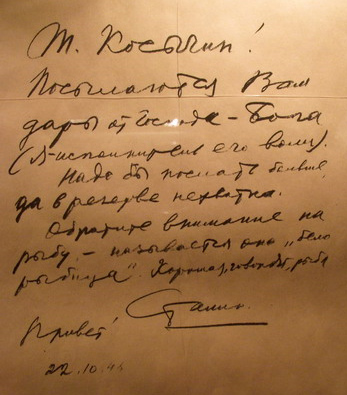 Т. Косыгин!
Посылаются Вам
дары от Господа-Бога
(Я-исполнитель его воли).
Надо бы послать больше,
да в резерве нехватка.
Обратите внимание на
рыбу, – называется она „бело
рыбица“. Хорошая, говорят, рыба
Привет! Сталин.
22.10.44